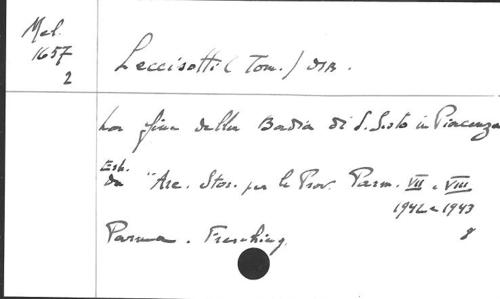 Mel.
1657
2
Leccisotti (Tom.) OSB.
La fine della Badia di S. Sisto in Piacenza
Estr.
da "Arc. Stor. per le Prov. Parm. VII e VIII
1942 e 1943
Parma. Fresching. 8